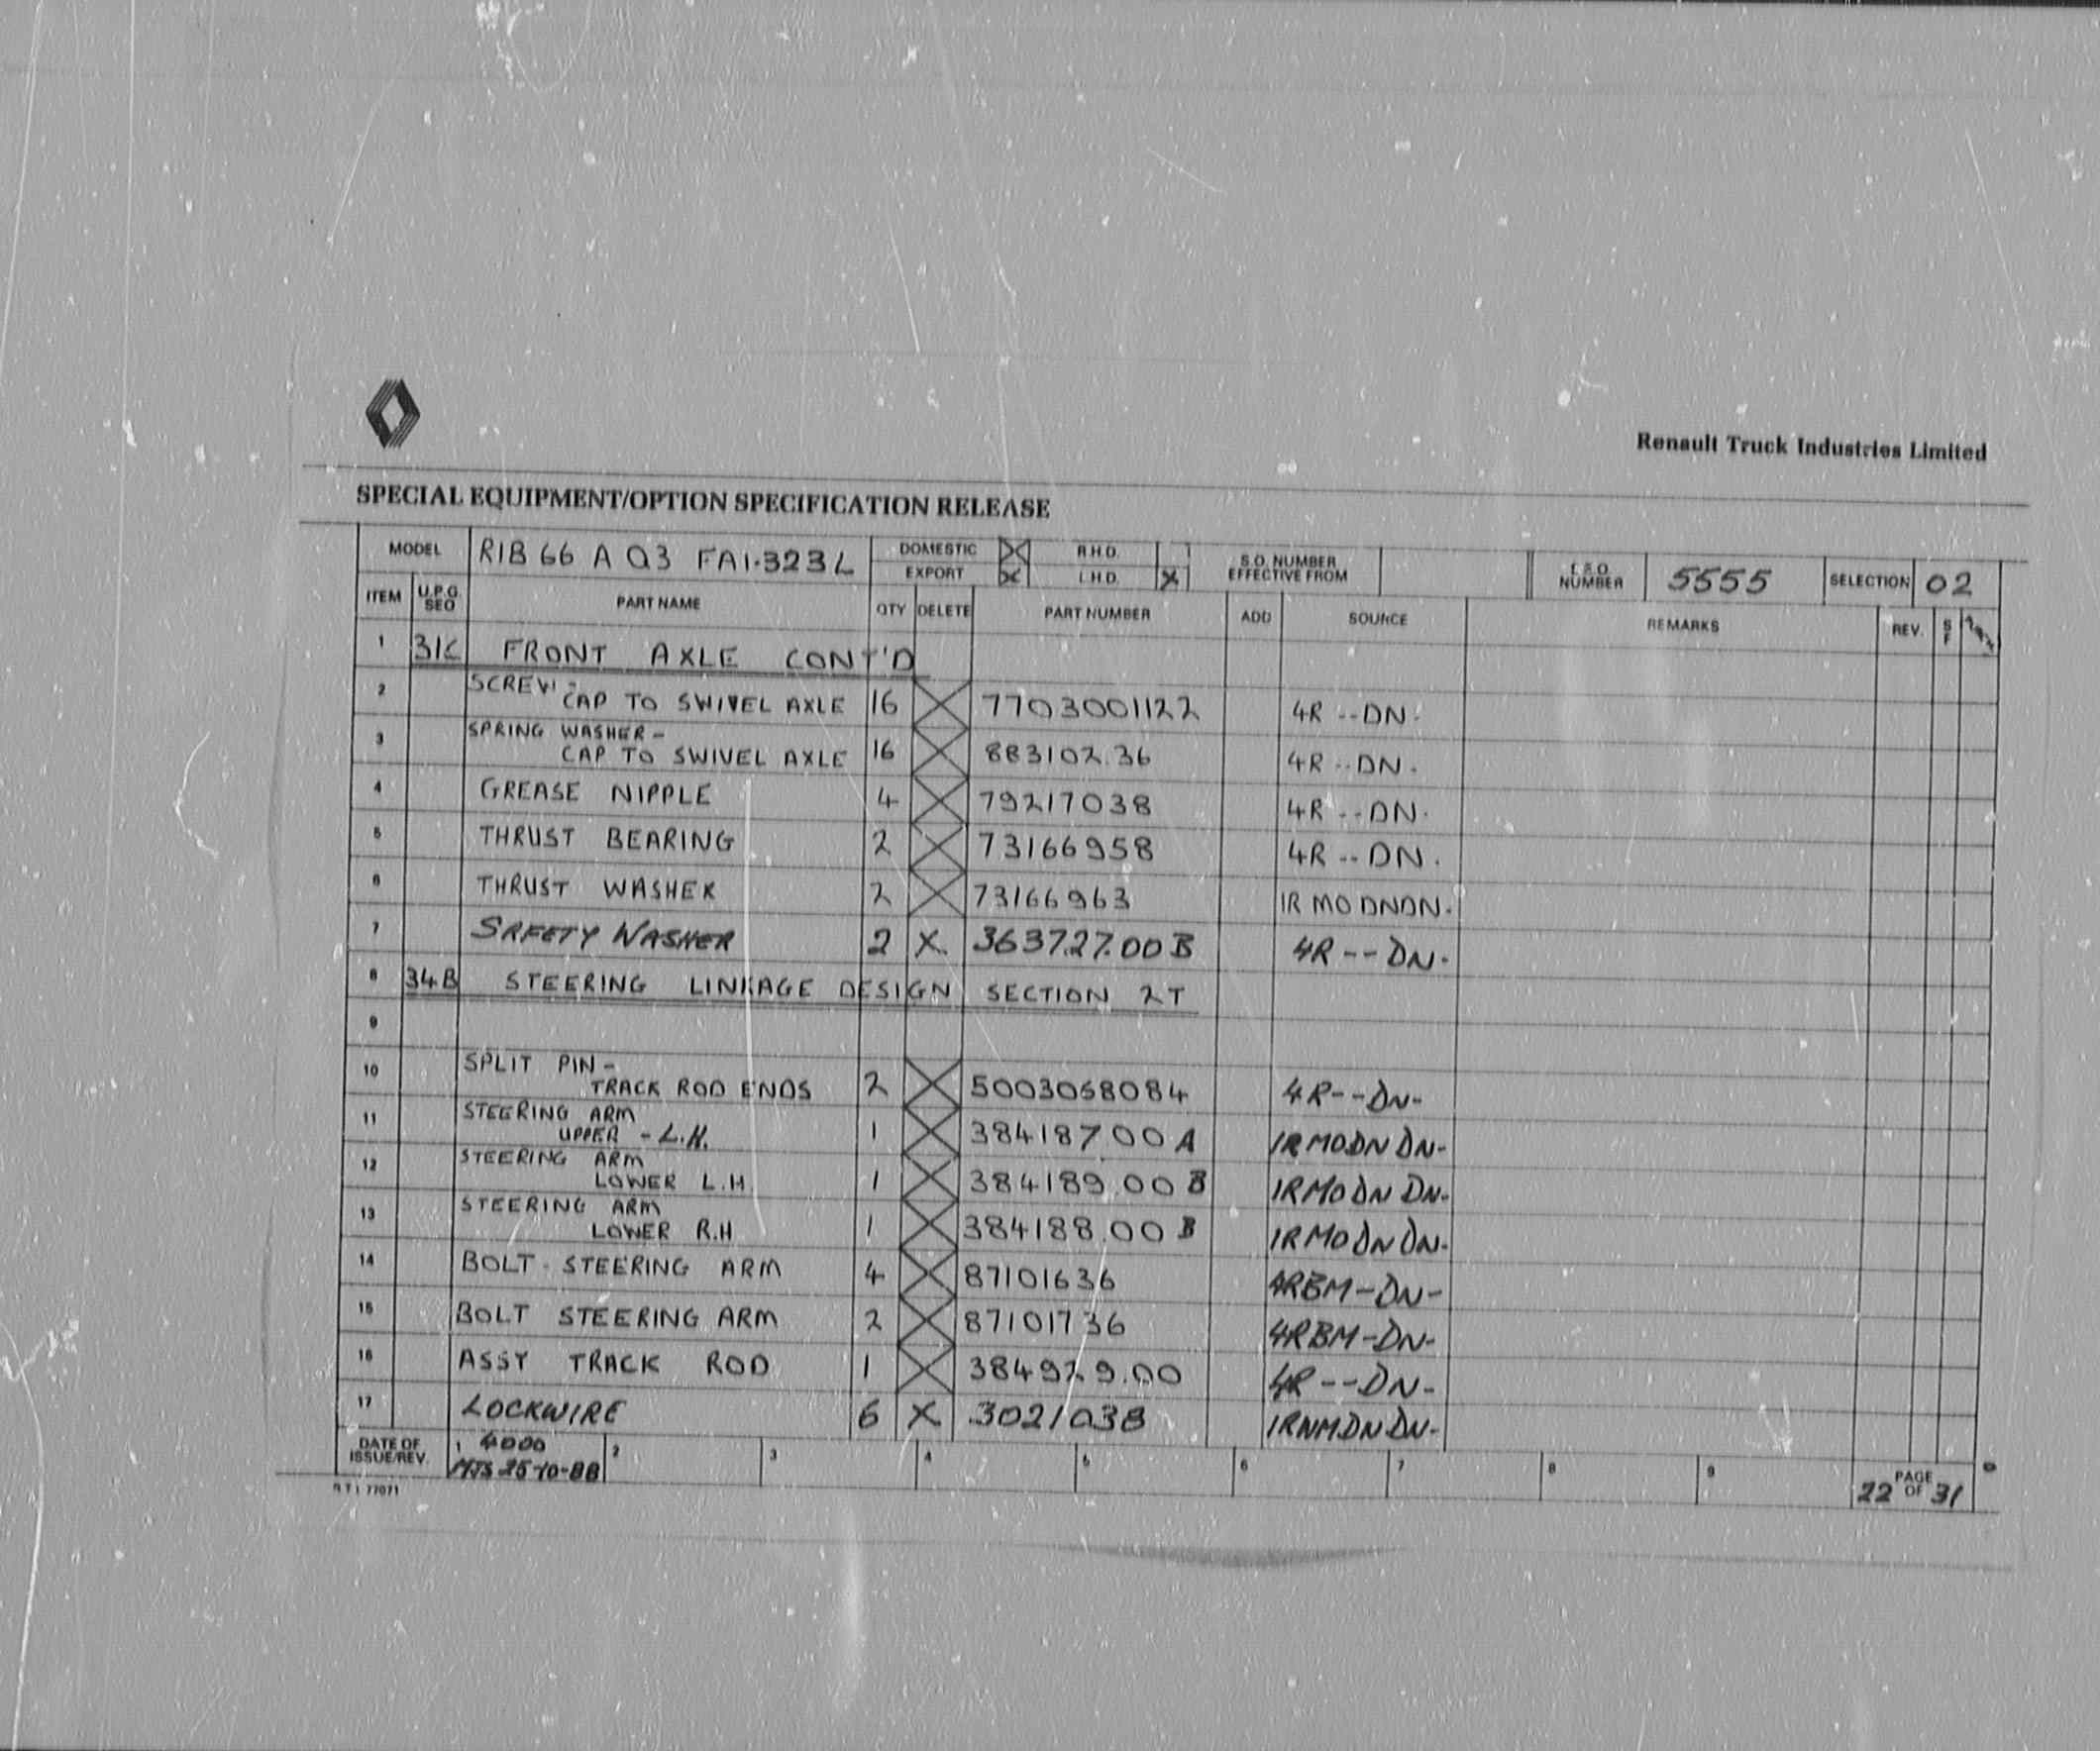 Renault Truck Industries Limited
SPECIAL EQUIPMENT/OPTION SPECIFICATION RELEASE
MODEL R1B 66 A Q3 FA1.323L DOMESTIC X R.H.D. S.O. NUMBER EFFECTIVE FROM NUMBER 5555 SELECTION 02
EXPORT X L.H.D. X
ITEM U.P.G. SEQ PART NAME QTY DELETE PART NUMBER ADD SOURCE REMARKS REV. S F
1 31C FRONT AXLE CONT'D
2 SCREW - CAP TO SWIVEL AXLE 16 X 7703001122 4R --DN-
3 SPRING WASHER - CAP TO SWIVEL AXLE 16 X 883102.36 4R --DN-
4 GREASE NIPPLE 4 X 79217038 4R --DN-
5 THRUST BEARING 2 X 73166958 4R --DN-
6 THRUST WASHER 2 X 73166963 1R MO DNDN-
7 SAFETY WASHER 2 X 363727.00 B 4R --DN-
8 34B STEERING LINKAGE DESIGN SECTION 2T
9
10 SPLIT PIN - TRACK ROD ENDS 2 X 5003058084 4R--DN-
11 STEERING ARM UPPER - L.H. 1 X 384187.00 A 1RMODNDN-
12 STEERING ARM LOWER L.H 1 X 384189.00 B 1RMODNDN-
13 STEERING ARM LOWER R.H 1 X 384188.00 B 1RMODNDN-
14 BOLT - STEERING ARM 4 X 87101636 4RBM-DN-
15 BOLT STEERING ARM 2 X 87101736 4RBM-DN-
16 ASSY TRACK ROD 1 X 384929.00 4R--DN-
17 LOCKWIRE 6 X 3021038 1RNMDNDN-
DATE OF ISSUE/REV. 1 4000 2 3 4 5 6 7 8 9 PAGE 22 OF 31
MJS 25-10-88
R T I 77071